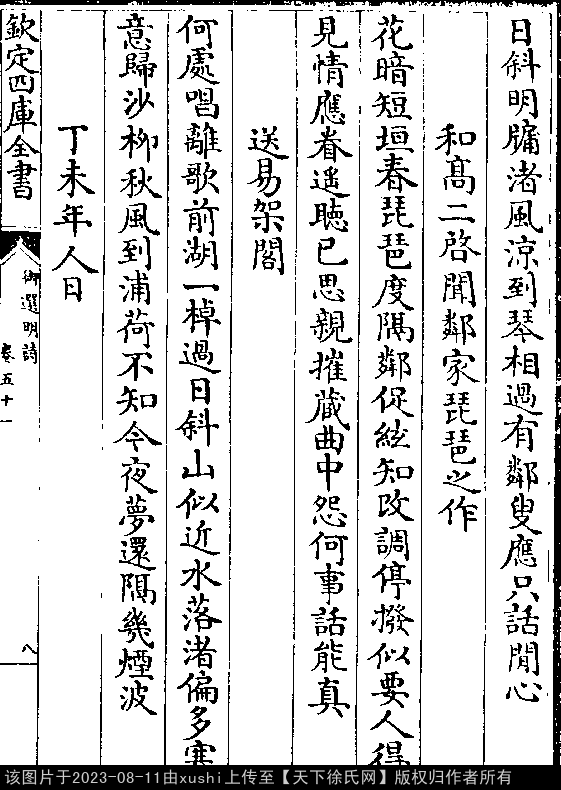 日斜明牖渚風涼到琴相過有鄰叟應只話閒心
和髙二啓聞鄰家琵琶之作
花暗短垣春琵琶度隔鄰促絃知改調停撥似要人得
見情應眷遥聽已思親摧藏曲中怨何事話能真
送易架閣
何處唱離歌前湖一棹過日斜山似近水落渚偏多寒
意歸沙栁秋風到浦荷不知今夜夢還隔幾煙波
丁未年人日
欽定四庫全書
御選明詩
卷五十一
八
该图片于2023-08-11由xushi上传至【天下徐氏网】版权归作者所有